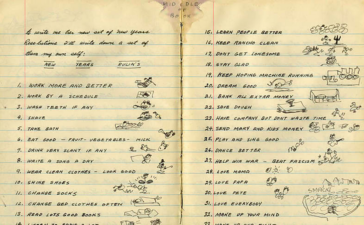 NEW YEARS RULIN'S
1. WORK MORE AND BETTER
2. WORK BY A SCHEDULE
3. WASH TEETH IF ANY
4. SHAVE
5. TAKE BATH
6. EAT GOOD - FRUIT - VEGETABLES - MILK
7. DRINK VERY SCANT IF ANY
8. WRITE A SONG A DAY
9. WEAR CLEAN CLOTHES - LOOK GOOD
10. SHINE SHOES
11. CHANGE SOCKS
12. CHANGE BED CLOTHES OFTEN
13. READ LOTS GOOD BOOKS
15. LEARN PEOPLE BETTER
16. KEEP RANCHO CLEAN
17. DONT GET LONESOME
18. STAY GLAD
19. KEEP HOPING MACHINE RUNNING
20. DREAM GOOD
21. BANK ALL EXTRA MONEY
22. SAVE DOUGH
23. HAVE COMPANY BUT DONT WASTE TIME
24. SEND MARY AND KIDS MONEY
25. PLAY AND SING GOOD
26. DANCE BETTER
27. HELP WIN WAR - BEAT FASCISM
28. LOVE MAMA
29. LOVE PAPA
30. LOVE PETE
31. LOVE EVERYBODY
32. MAKE UP YOUR MIND